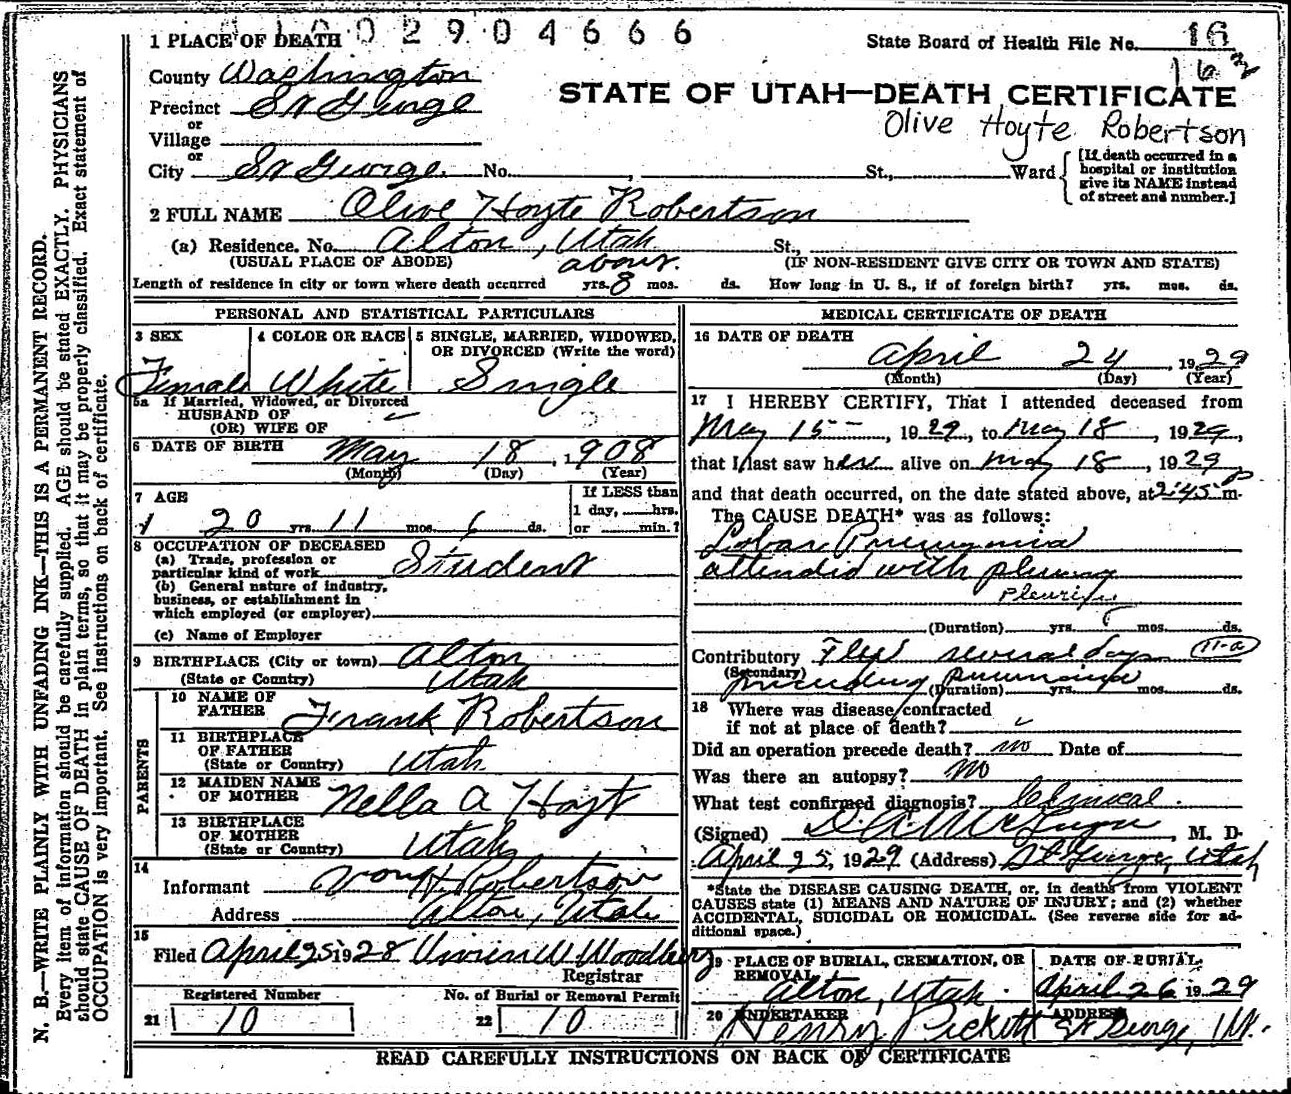 1 0 0 2 9 0 4 6 6 6
1 PLACE OF DEATH
State Board of Health File No. 16
16
County Washington
STATE OF UTAH—DEATH CERTIFICATE
Precinct St George
Olive Hoyte Robertson
or
Village
or
City St George No. , St., Ward
[If death occurred in a hospital or institution give its NAME instead of street and number.]
2 FULL NAME Olive Hoyte Robertson
(a) Residence. No. Alton, Utah St.,
(USUAL PLACE OF ABODE) about (IF NON-RESIDENT GIVE CITY OR TOWN AND STATE)
Length of residence in city or town where death occurred yrs. 8 mos. ds. How long in U. S., if of foreign birth? yrs. mos. ds.
PERSONAL AND STATISTICAL PARTICULARS
3 SEX
Female
4 COLOR OR RACE
White
5 SINGLE, MARRIED, WIDOWED, OR DIVORCED (Write the word)
Single
5a If Married, Widowed, or Divorced
HUSBAND OF
(OR) WIFE OF
6 DATE OF BIRTH May 18, 1908
(Month) (Day) (Year)
7 AGE
20 yrs. 11 mos. 6 ds.
If LESS than
1 day, hrs.
or min.?
8 OCCUPATION OF DECEASED
(a) Trade, profession or
particular kind of work Student
(b) General nature of industry,
business, or establishment in
which employed (or employer)
(c) Name of Employer
9 BIRTHPLACE (City or town) Alton
(State or Country) Utah
PARENTS
10 NAME OF FATHER Frank Robertson
11 BIRTHPLACE OF FATHER
(State or Country) Utah
12 MAIDEN NAME OF MOTHER Nella A Hoyt
13 BIRTHPLACE OF MOTHER
(State or Country) Utah
14
Informant H. Robertson
Address Alton, Utah
15
Filed April 25 1928 W Woodbury
Registrar
Registered Number
21 10
No. of Burial or Removal Permit
22 10
MEDICAL CERTIFICATE OF DEATH
16 DATE OF DEATH
April 24, 1929
(Month) (Day) (Year)
17 I HEREBY CERTIFY, That I attended deceased from
May 15, 1929, to May 18, 1929,
that I last saw her alive on May 18, 1929
and that death occurred, on the date stated above, at 2:45 p m.
The CAUSE DEATH* was as follows:
Lobar Pneumonia
attendid with pleurisy
(Duration) yrs. mos. ds.
Contributory Flu several days 11-a
(Secondary) preceeding pneumonia
(Duration) yrs. mos. ds.
18 Where was disease contracted
if not at place of death?
Did an operation precede death? no Date of
Was there an autopsy? no
What test confirmed diagnosis? Clinical
(Signed) , M. D.
April 25, 1929 (Address) St George, Utah
*State the DISEASE CAUSING DEATH, or, in deaths from VIOLENT
CAUSES state (1) MEANS AND NATURE OF INJURY; and (2) whether
ACCIDENTAL, SUICIDAL OR HOMICIDAL. (See reverse side for ad-
ditional space.)
19 PLACE OF BURIAL, CREMATION, OR REMOVAL
Alton, Utah
DATE OF BURIAL
April 26 1929
20 UNDERTAKER
Henry Pickett
ADDRESS
St George, Ut.
READ CAREFULLY INSTRUCTIONS ON BACK OF CERTIFICATE
N. B.—WRITE PLAINLY WITH UNFADING INK—THIS IS A PERMANENT RECORD.
Every item of information should be carefully supplied. AGE should be stated EXACTLY. PHYSICIANS
should state CAUSE OF DEATH in plain terms, so that it may be properly classified. Exact statement of
OCCUPATION is very important. See instructions on back of certificate.